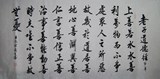 老子道德經
上善若水水善
利萬物而不爭
處衆人之所惡
故幾於道居善
地心善淵與善
仁言善信正善
治事善能動善
時夫唯不爭故